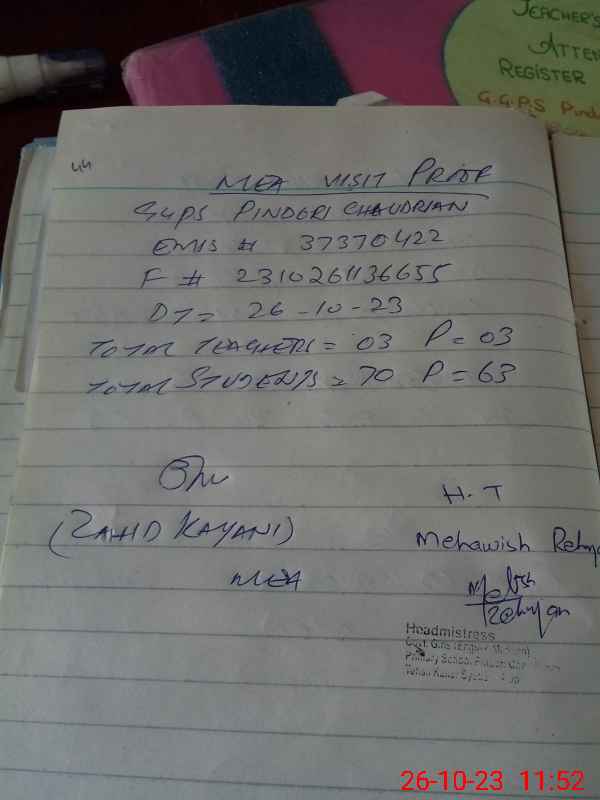 TEACHER'S
ATTEN
REGISTER
G.G.P.S Pind
44
MEA VISIT PROOF
GGPS PINDORI CHAUDRIAN
EMIS # 37370422
F # 2310261136655
DT= 26-10-23
TOTAL TEACHERS = 03 P = 03
TOTAL STUDENTS = 70 P = 63
(ZAHID KAYANI)
MEA
H.T
Mehawish Rehma
Mehwish
Rehman
Headmistress
Govt. Girls (English Medium)
Primary School
26-10-23 11:52